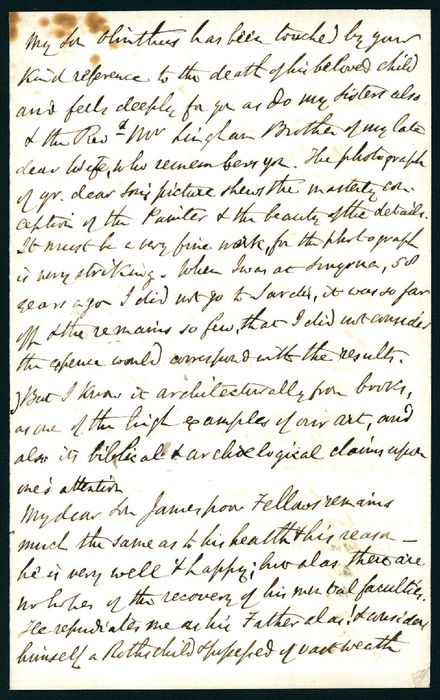 My Son Olinthus has been touched by your
kind reference to the death of his beloved child
and feels deeply for you as do my sisters also
& the Revd Mr Lingham Brother of my late
dear Wife, who remembers you. The photograph
of yr. dear Son's picture shews the masterly con-
ception of the Painter & the beauty of the details.
It must be a very fine work, for the photograph
is very striking. When I was at Smyrna, 58
years ago I did not go to Sardis, it was so far
off & the remains so few, that I did not consider
the expence would correspond with the results.
But I know it architecturally from books,
as one of the high examples of our art, and
also its biblical & archæological claims upon
one's attention
My dear Son James poor Fellow remains
much the same as to his health & his reason —
he is very well & happy, but alas there are
no hopes of the recovery of his mental faculties.
He repudiates me as his Father alas! & considers
himself a Rothschild & possessed of vast wealth